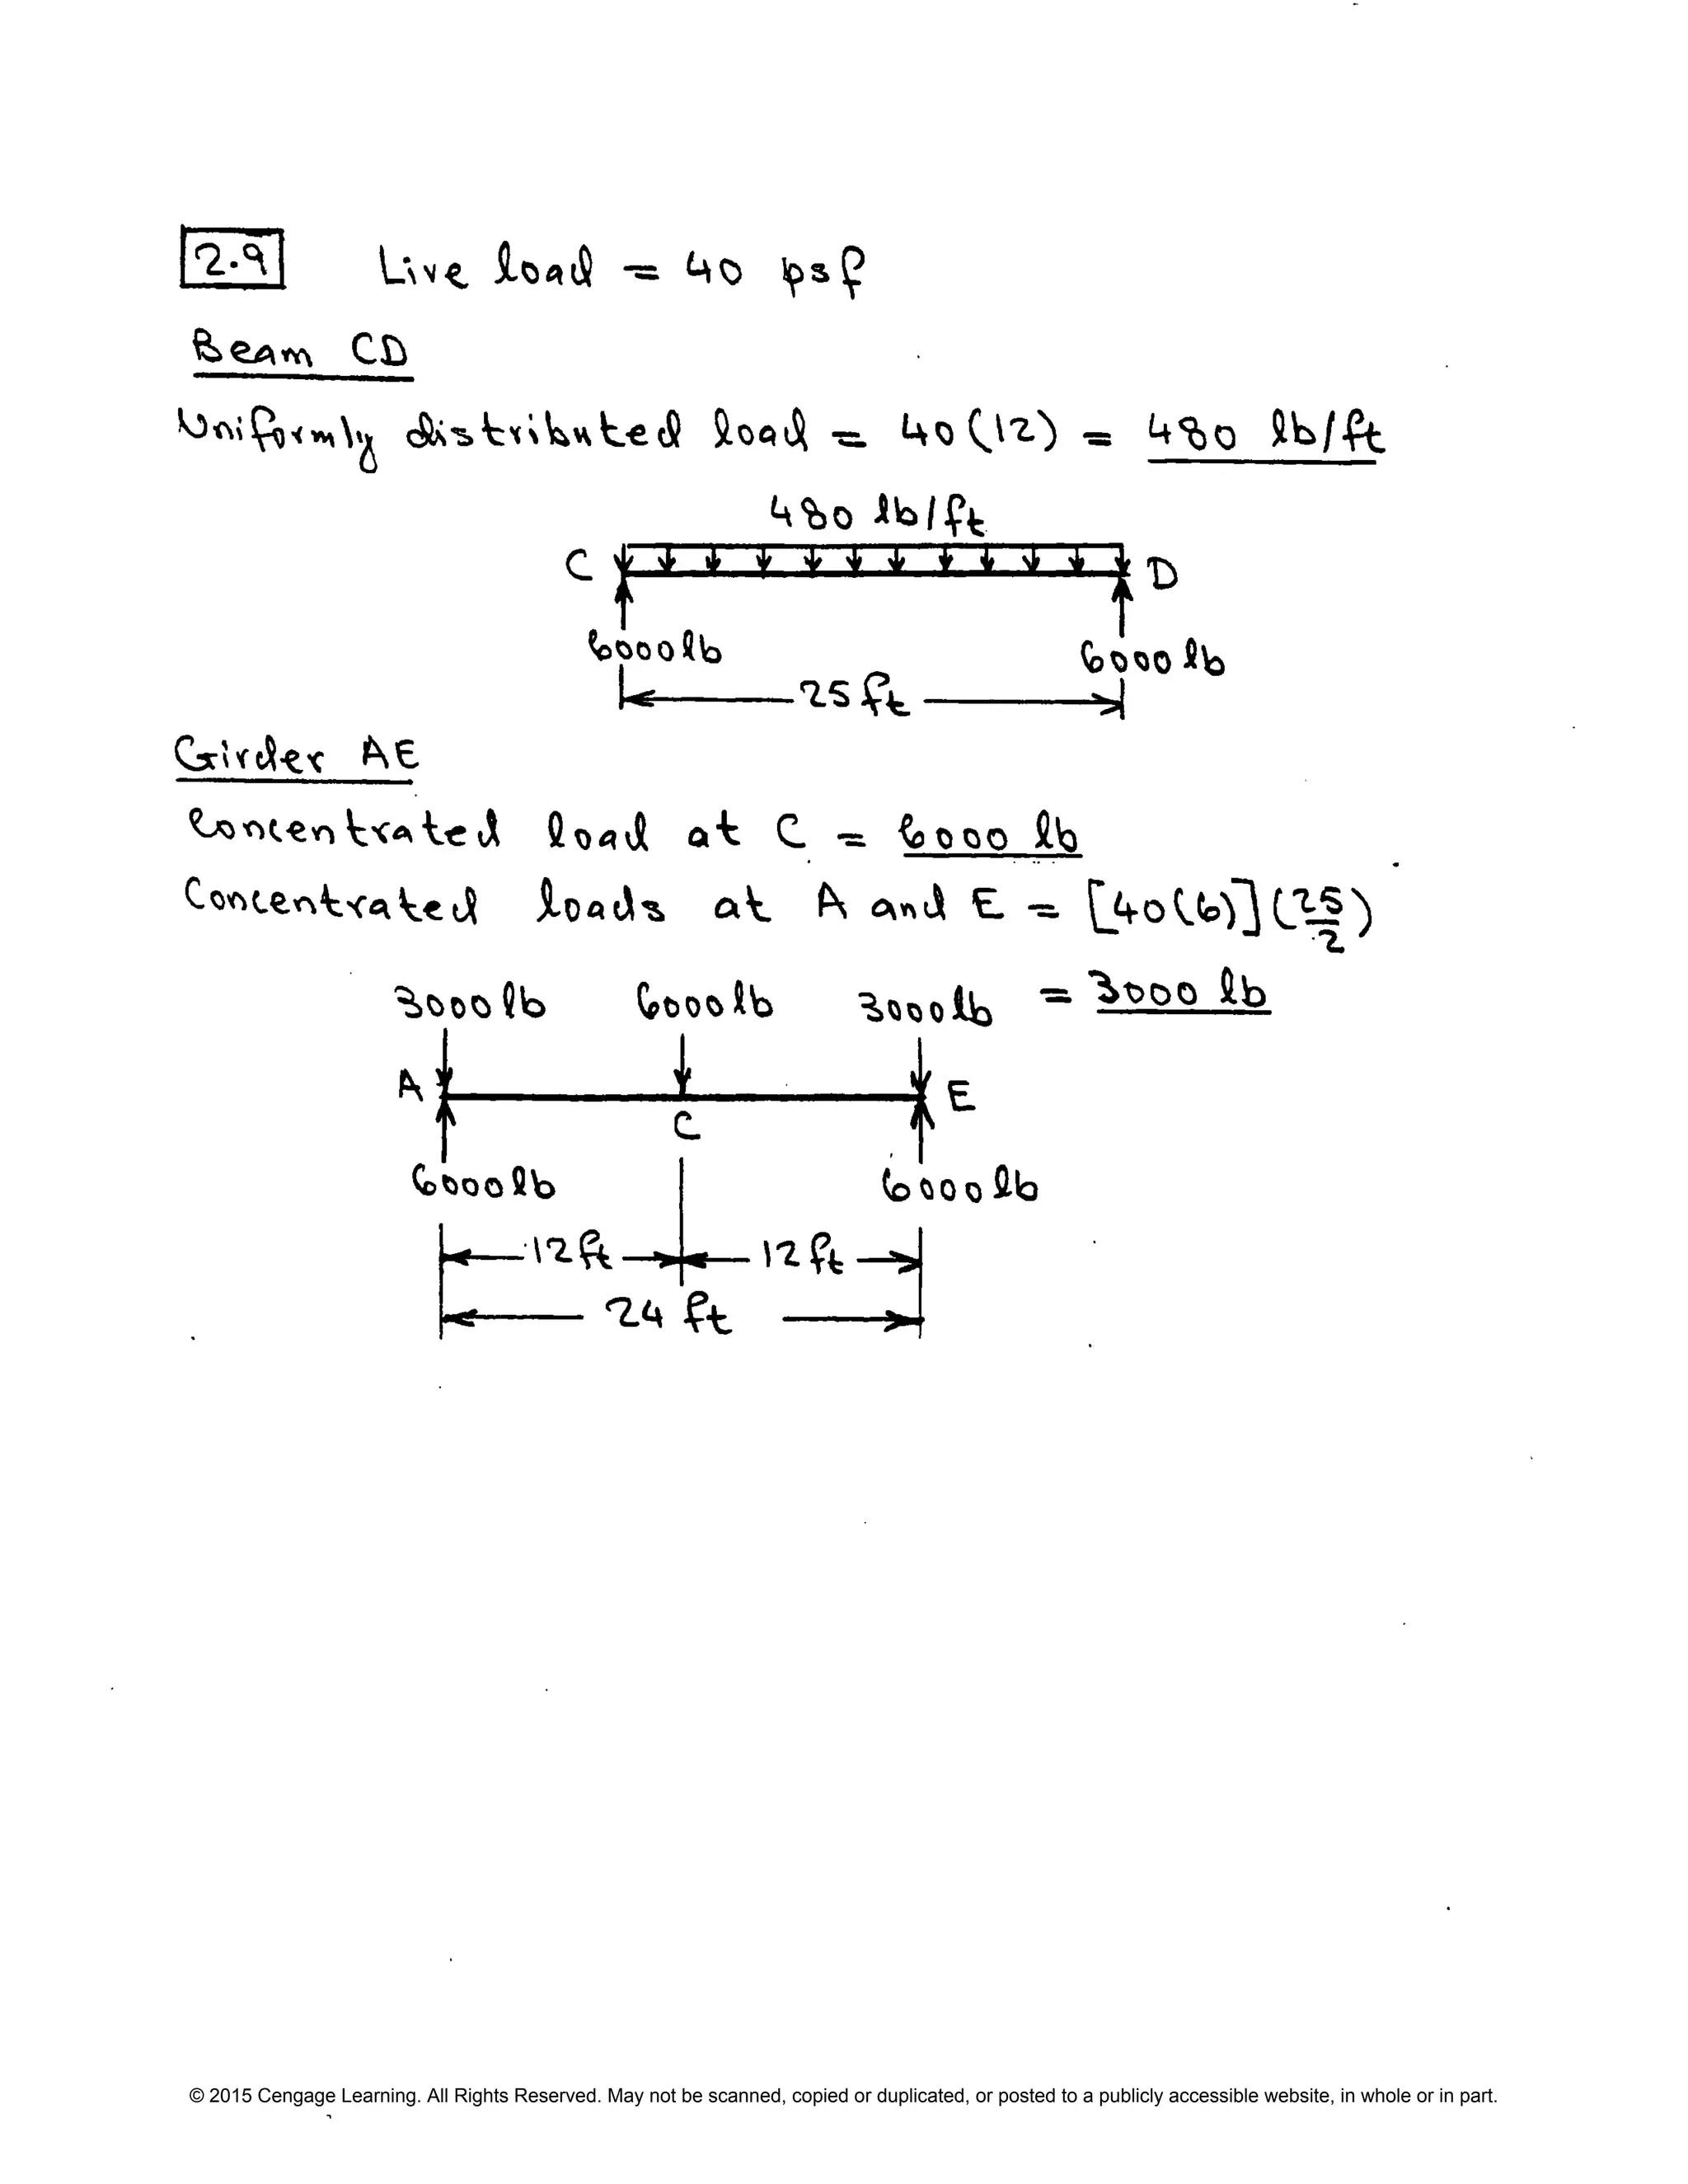 2.9 Live load = 40 psf
Beam CD
Uniformly distributed load = 40(12) = 480 lb/ft
480 lb/ft
C D
6000 lb 6000 lb
25 ft
Girder AE
Concentrated load at C = 6000 lb
Concentrated loads at A and E = [40(6)](25/2)
= 3000 lb
3000 lb 6000 lb 3000 lb
A E
C
6000 lb 6000 lb
12 ft 12 ft
24 ft
© 2015 Cengage Learning. All Rights Reserved. May not be scanned, copied or duplicated, or posted to a publicly accessible website, in whole or in part.